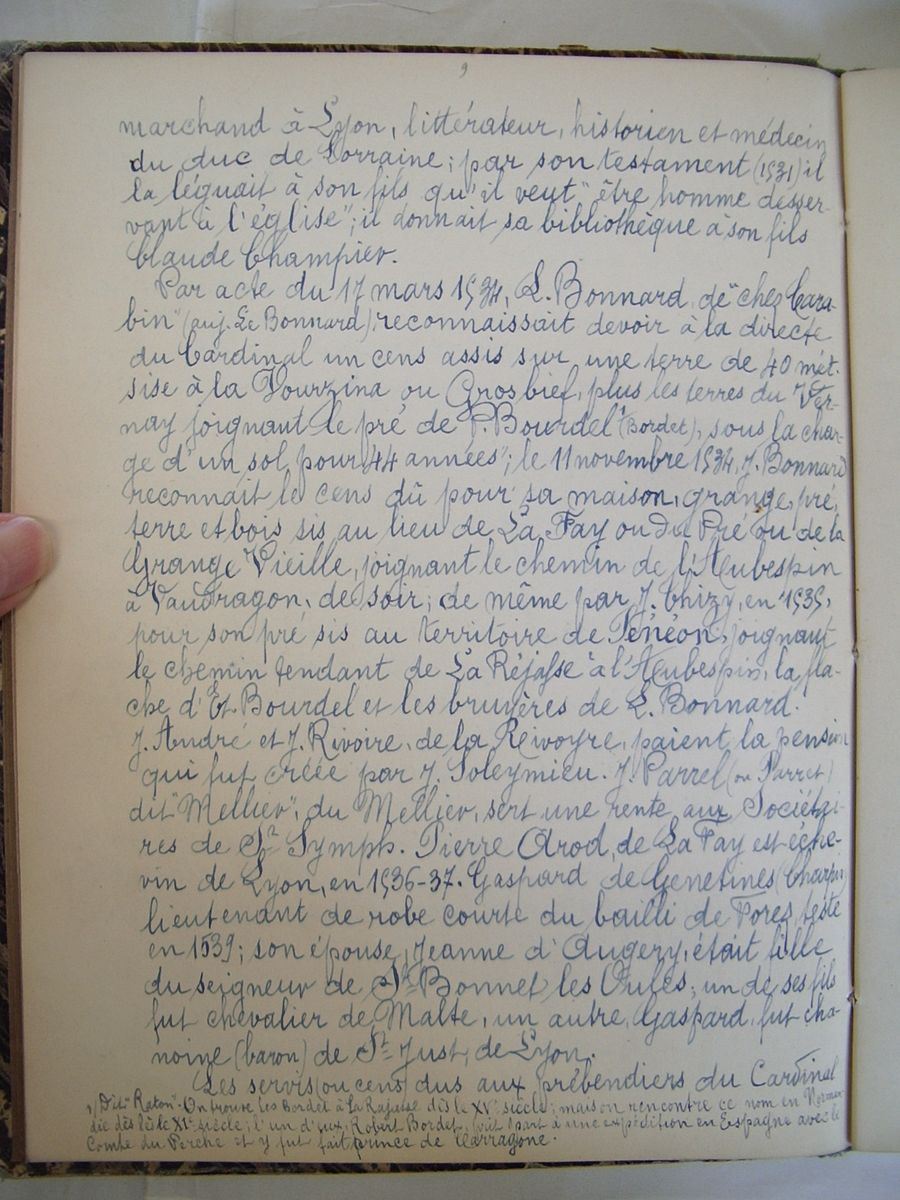 9
marchand à Lyon, littérateur, historien et médecin
du duc de Lorraine; par son testament (1531) il
la léguait à son fils qu'il veut "être homme desser-
vant à l'église"; il donnait sa bibliothèque à son fils
Claude Champier.
Par acte du 17 mars 1534, L. Bonnard, de "chez Cara-
bin" (auj. Le Bonnard) reconnaissait devoir à la directe
du Cardinal un cens assis sur une terre de 40 mét.
sise à la Vourzina ou Grosbief, plus les terres du Ver-
nay joignant le pré de P. Bourdel¹ (Bordet), sous la char-
ge d'un sol pour 44 années"; le 11 novembre 1534, J. Bonnard
reconnait le cens dû pour sa maison, grange, pré,
terre et bois sis au lieu de La Fay ou du Pré ou de la
Grange Vieille, joignant le chemin de l'Aubespin
à Vaudragon, de soir; de même par J. Chizy, en 1535,
pour son pré sis au territoire de Pénéon, joignant
le chemin tendant de La Réjasse à l'Aubespin, la pla-
che d'Et. Bourdel et les bruyères de L. Bonnard.
J. André et J. Rivoire, de la Rivoyre, paient la pension
qui fut créée par J. Soleymieu. J. Parrel (ou Parret)
dit "Mellier", du Mellier, sert une rente aux Sociétai-
res de St Symph. Pierre Arod, de La Fay est éche-
vin de Lyon, en 1536-37. Gaspard de Genetines (Charpin)
lieutenant de robe courte du bailli de Forez, teste
en 1539; son épouse, Jeanne d'Augery, était fille
du seigneur de St Bonnet les Oules; un de ses fils
fut chevalier de Malte, un autre, Gaspard, fut cha-
noine (baron) de St Just, de Lyon.
Les servis (ou cens) dus aux prébendiers du Cardinal
1/ Dit "Raton". On trouve les Bordet à la Rajasse dès le XVe siècle; mais on rencontre ce nom en Norman-
die dès le XIe siècle; l'un d'eux, Robert Bordet, prit part à une expédition en Espagne avec le
Comte du Perche et y fut fait prince de Tarragone.